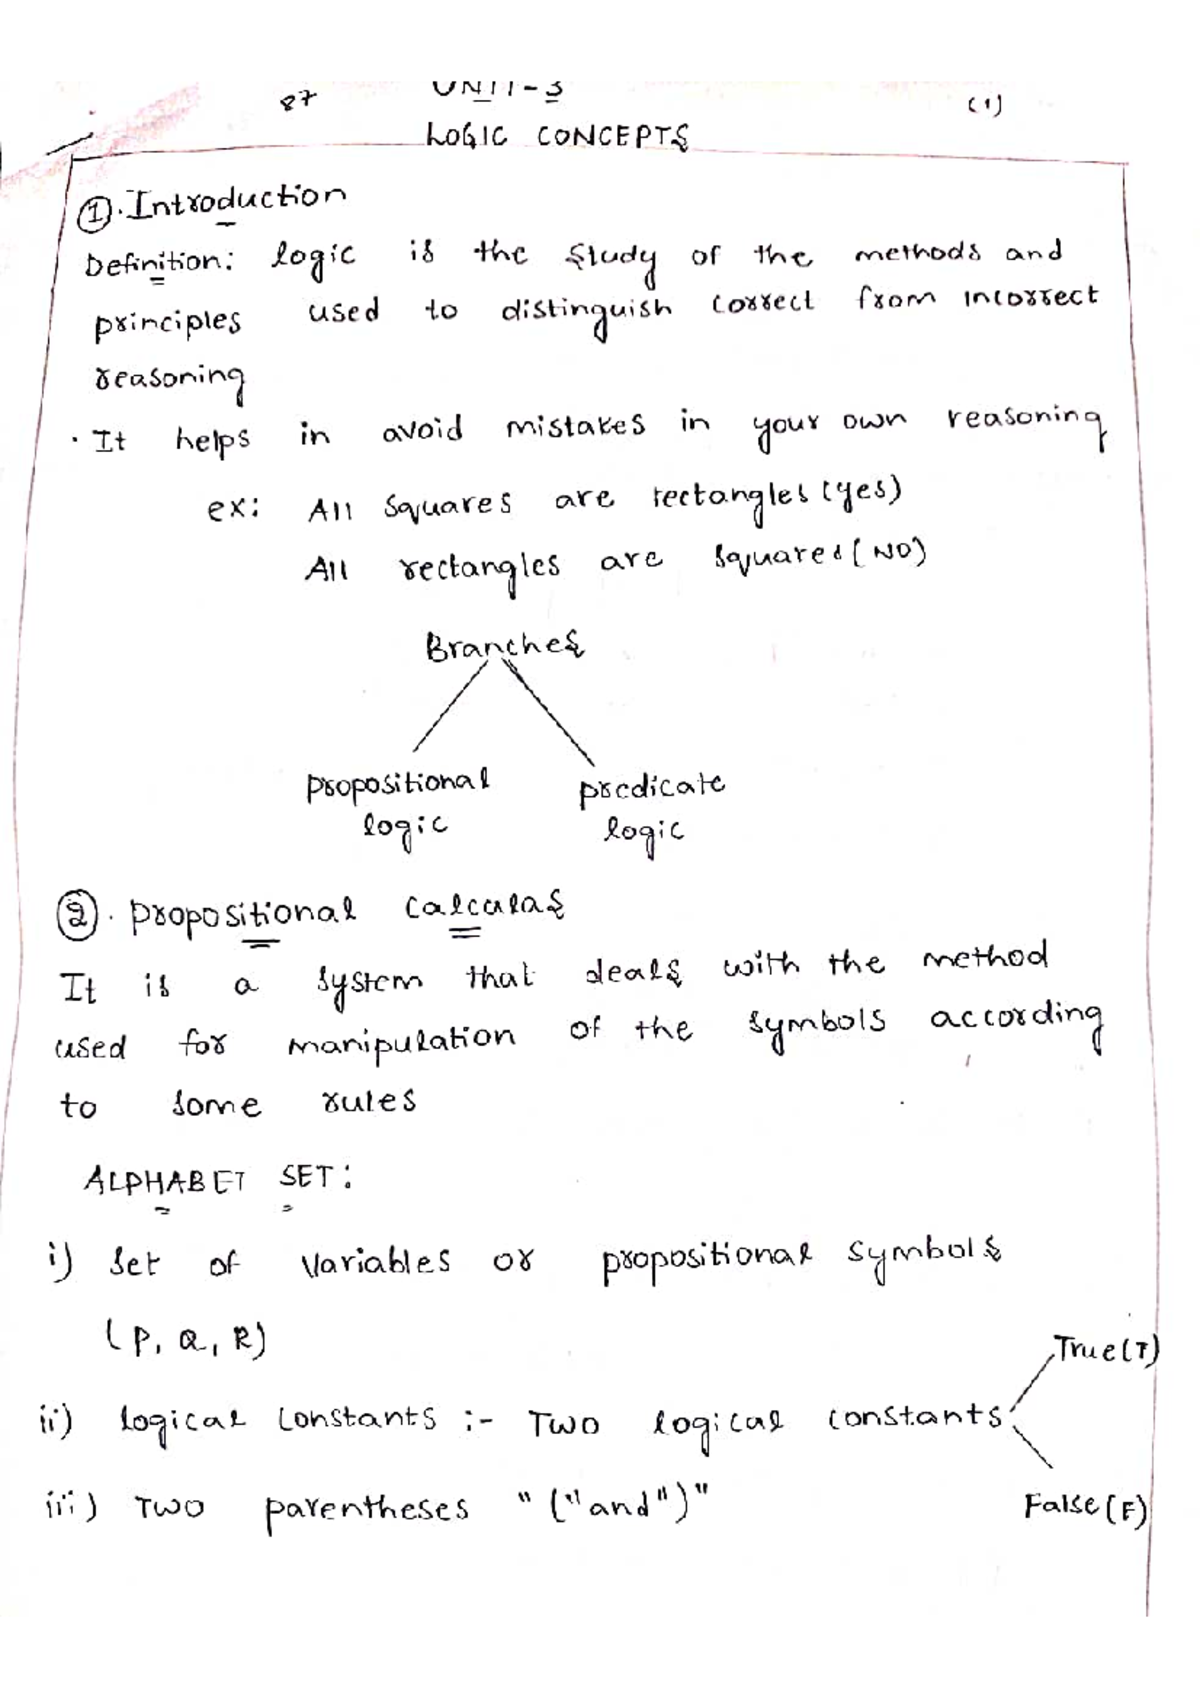 87
UNIT-3
(1)
LOGIC CONCEPTS
①. Introduction
Definition: logic is the study of the methods and
principles used to distinguish correct from incorrect
reasoning
. It helps in avoid mistakes in your own reasoning
ex: All squares are rectangles (yes)
All rectangles are squares (NO)
Branches
propositional predicate
logic logic
②. propositional calculas
It is a system that deals with the method
used for manipulation of the symbols according
to some rules
ALPHABET SET:
i) Set of Variables or propositional symbols
(P, Q, R)
True(T)
ii) logical constants :- Two logical constants
iii) TWO parentheses " ("and")"
False(F)